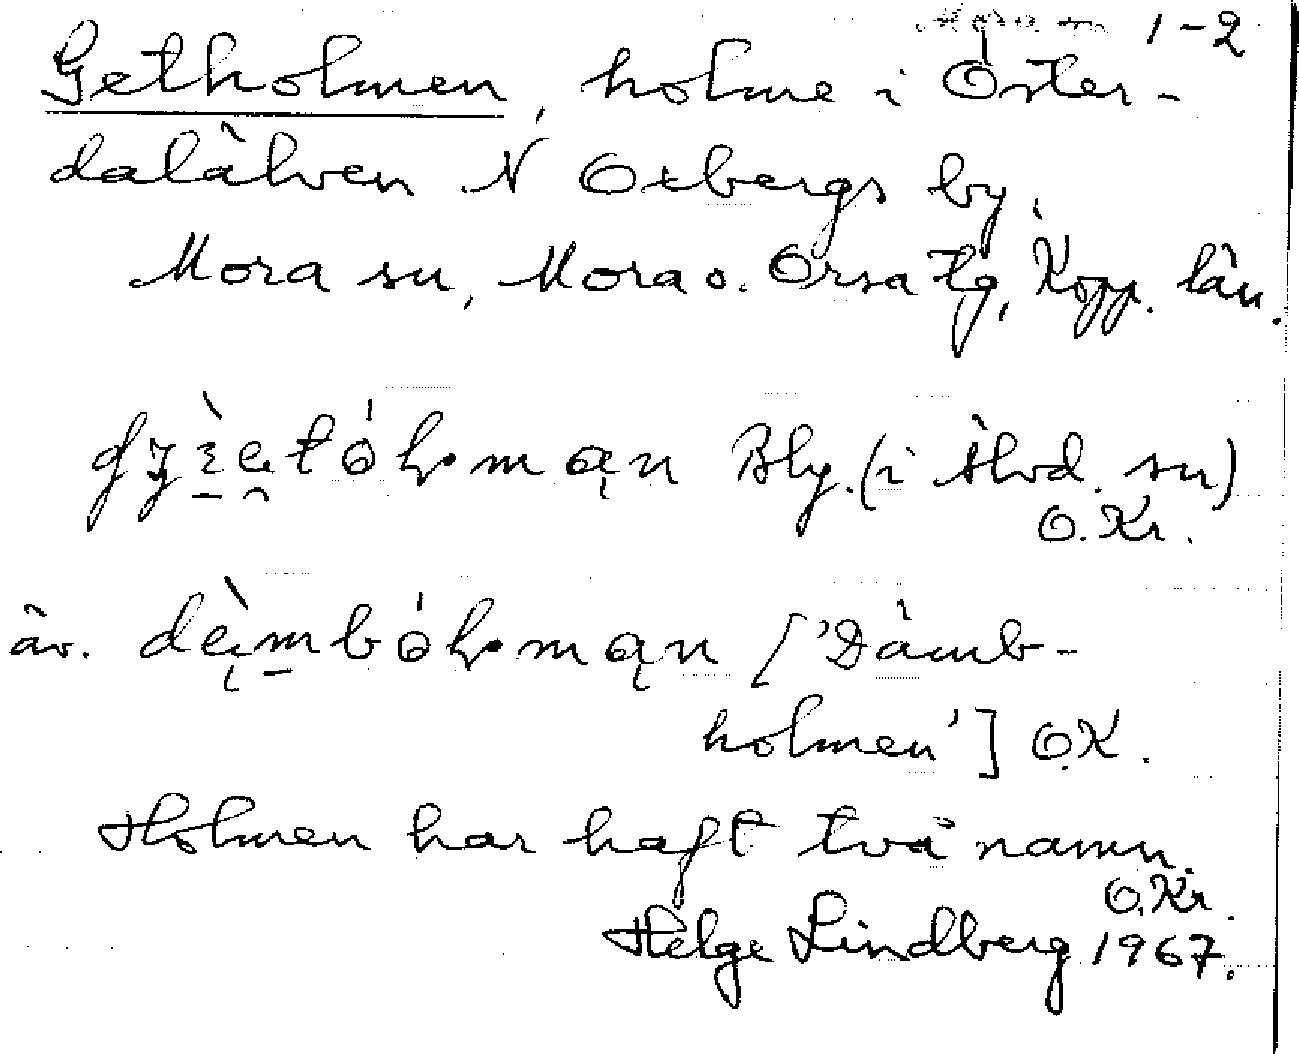 1-2
Getholmen, holme i Öster-
dalälven N Oxbergs by,
Mora sn, Mora o. Orsa tg, Kopp. län.
Bly. (i Älvd. sn)
O. Kr.
äv. ['Dämb-
holmen'] O.K.
Holmen har haft två namn.
O. Kr.
Helge Lindberg 1967.